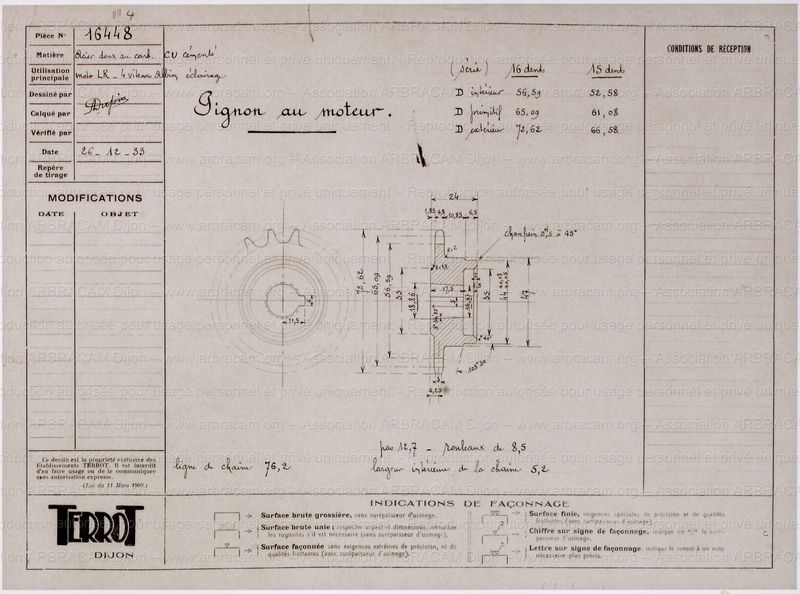 4
Pièce N° 16448
Matière Acier doux au carb. CU cémenté
Utilisation principale moto LR - 4 vitesses éclairage
Dessiné par
Calqué par
Vérifié par
Date 26-12-33
Repère de tirage
MODIFICATIONS
DATE OBJET
Pignon au moteur.
(série) 16 dents 15 dents
D intérieur 56,59 52,58
D primitif 65,09 61,08
D extérieur 72,62 66,58
CONDITIONS DE RÉCEPTION
24
1,85 4,8 10,85 6,5
chanfrein 0,5 à 45°
72,62
65,09
56,59
55
18,86
17,5
35
47
11,5
4,25
pas 12,7 - rouleaux de 8,5
ligne de chaîne 76,2 largeur intérieure de la chaîne 5,2
Ce dessin est la propriété exclusive des
Etablissements TERROT. Il est interdit
d'en faire usage ou de le communiquer
sans autorisation expresse.
(Loi du 11 Mars 1902.)
TERROT
DIJON
INDICATIONS DE FAÇONNAGE
Surface brute grossière, sans surépaisseur d'usinage.
Surface brute unie; respecter aspect et dimensions, retoucher
les rugosités s'il est nécessaire (sans surépaisseur d'usinage).
Surface façonnée sans exigences extrêmes de précision, ni de
qualités frottantes (avec surépaisseur d'usinage).
Surface finie, exigences spéciales de précision et de qualités
frottantes (avec surépaisseur d'usinage).
Chiffre sur signe de façonnage, indique en m/m la surépaisseur d'usinage.
Lettre sur signe de façonnage, indique le renvoi à un nota
nécessaire plus précis.
Reproduction autorisée pour usage personnel et privé uniquement – www.arbracam.org – Association ARBRACAM Dijon